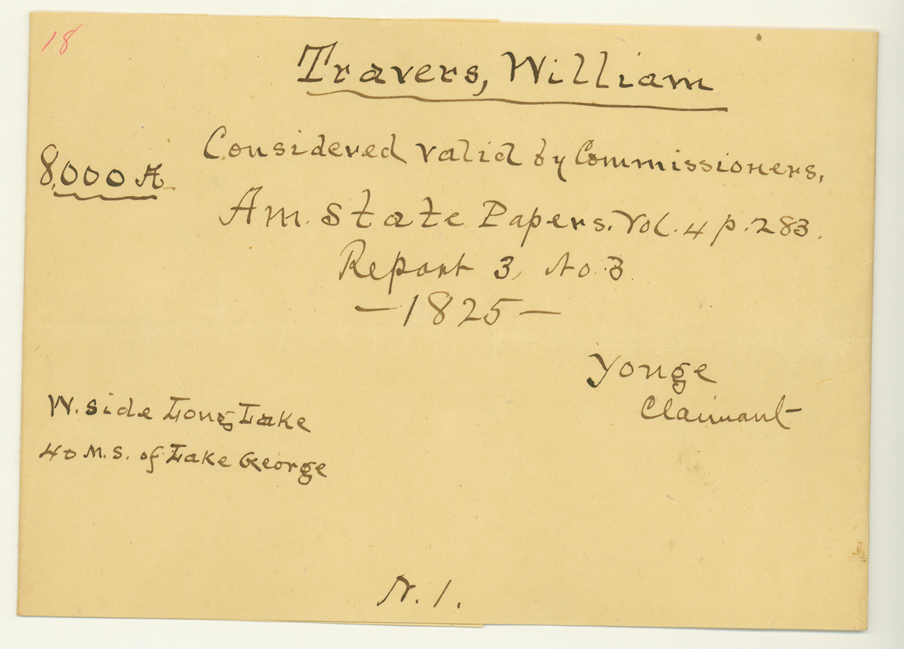 18
Travers, William
8,000 A
Considered valid by Commissioners,
Am. State Papers. Vol. 4 p. 283.
Report 3, No. 3
—1825—
Yonge
Claimant
W. side Long Lake
40 M. S. of Lake George
N. 1.